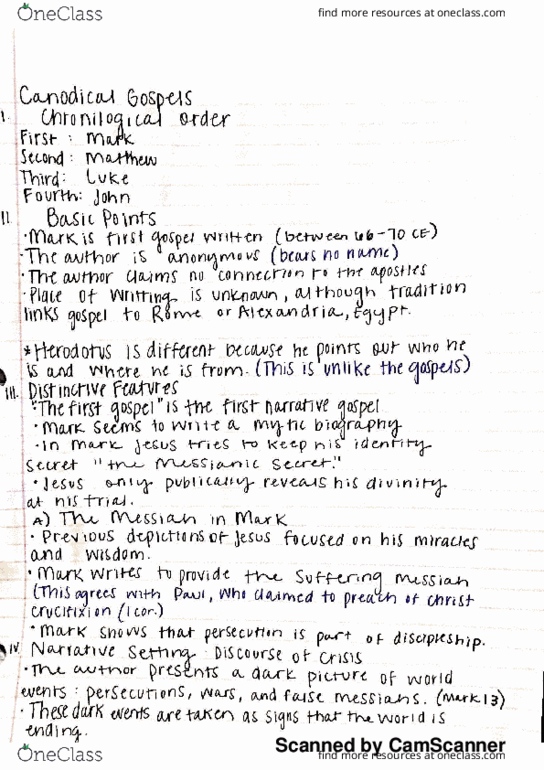 OneClass
find more resources at oneclass.com
Canodical Gospels
I. Chronilogical order
First : Mark
Second : Matthew
Third : Luke
Fourth : John
II. Basic Points
·Mark is first gospel written (between 66-70 CE)
·The author is anonymous (bears no name)
·The author claims no connection to the apostles
·Place of writing is unknown, although tradition
links gospel to Rome or Alexandria, Egypt.
*Herodotus is different because he points out who he
is and where he is from. (This is unlike the gospels)
III. Distinctive Features
·"The first gospel" is the first narrative gospel
·Mark seems to write a mytic biography
·In Mark Jesus tries to keep his identity
secret "the Messianic Secret."
·Jesus only publically reveals his divinity
at his trial.
A) The Messiah in Mark
·Previous depictions of Jesus focused on his miracles
and wisdom.
·Mark writes to provide the Suffering Messiah
(This agrees with Paul, who claimed to preach of Christ
crucifixion (1 cor.)
·Mark shows that persecution is part of discipleship.
IV. Narrative Setting : Discourse of Crisis
·The author presents a dark picture of world
events : persecutions, wars, and false messiahs. (Mark 13)
·These dark events are taken as signs that the world is
ending.
Scanned by CamScanner
OneClass
find more resources at oneclass.com